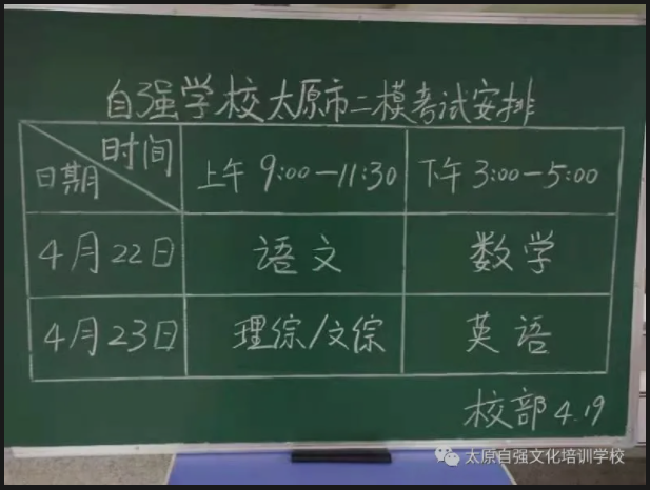 自强学校太原市二模考试安排
时间
日期
上午 9:00-11:30 下午 3:00-5:00
4月22日 语文 数学
4月23日 理综/文综 英语
校部 4.19
太原自强文化培训学校